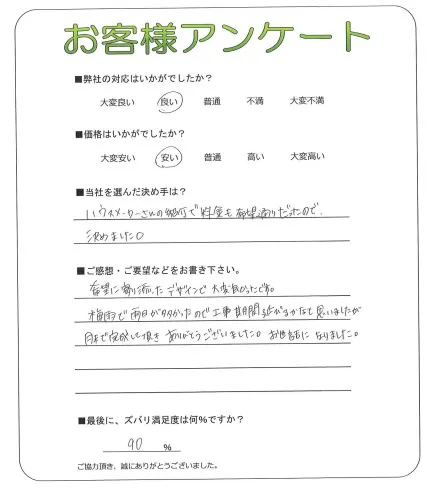 お客様アンケート
■弊社の対応はいかがでしたか？
大変良い 良い 普通 不満 大変不満
■価格はいかがでしたか？
大変安い 安い 普通 高い 大変高い
■当社を選んだ決め手は？
ハウスメーカーさんの紹介で料金も希望通りだったので、
決めました。
■ご感想・ご要望などをお書き下さい。
希望に寄り添ったデザインで大変良かったです。
梅雨で雨日が多かったので工事期間延びるかなと思いましたが
まで完成して頂きありがとうございました。お世話になりました。
■最後に、ズバリ満足度は何％ですか？
90 ％
ご協力頂き、誠にありがとうございました。